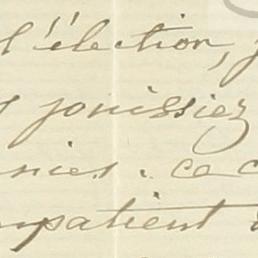 l'élection, j
jouissiez
nies. ce c
mpatient